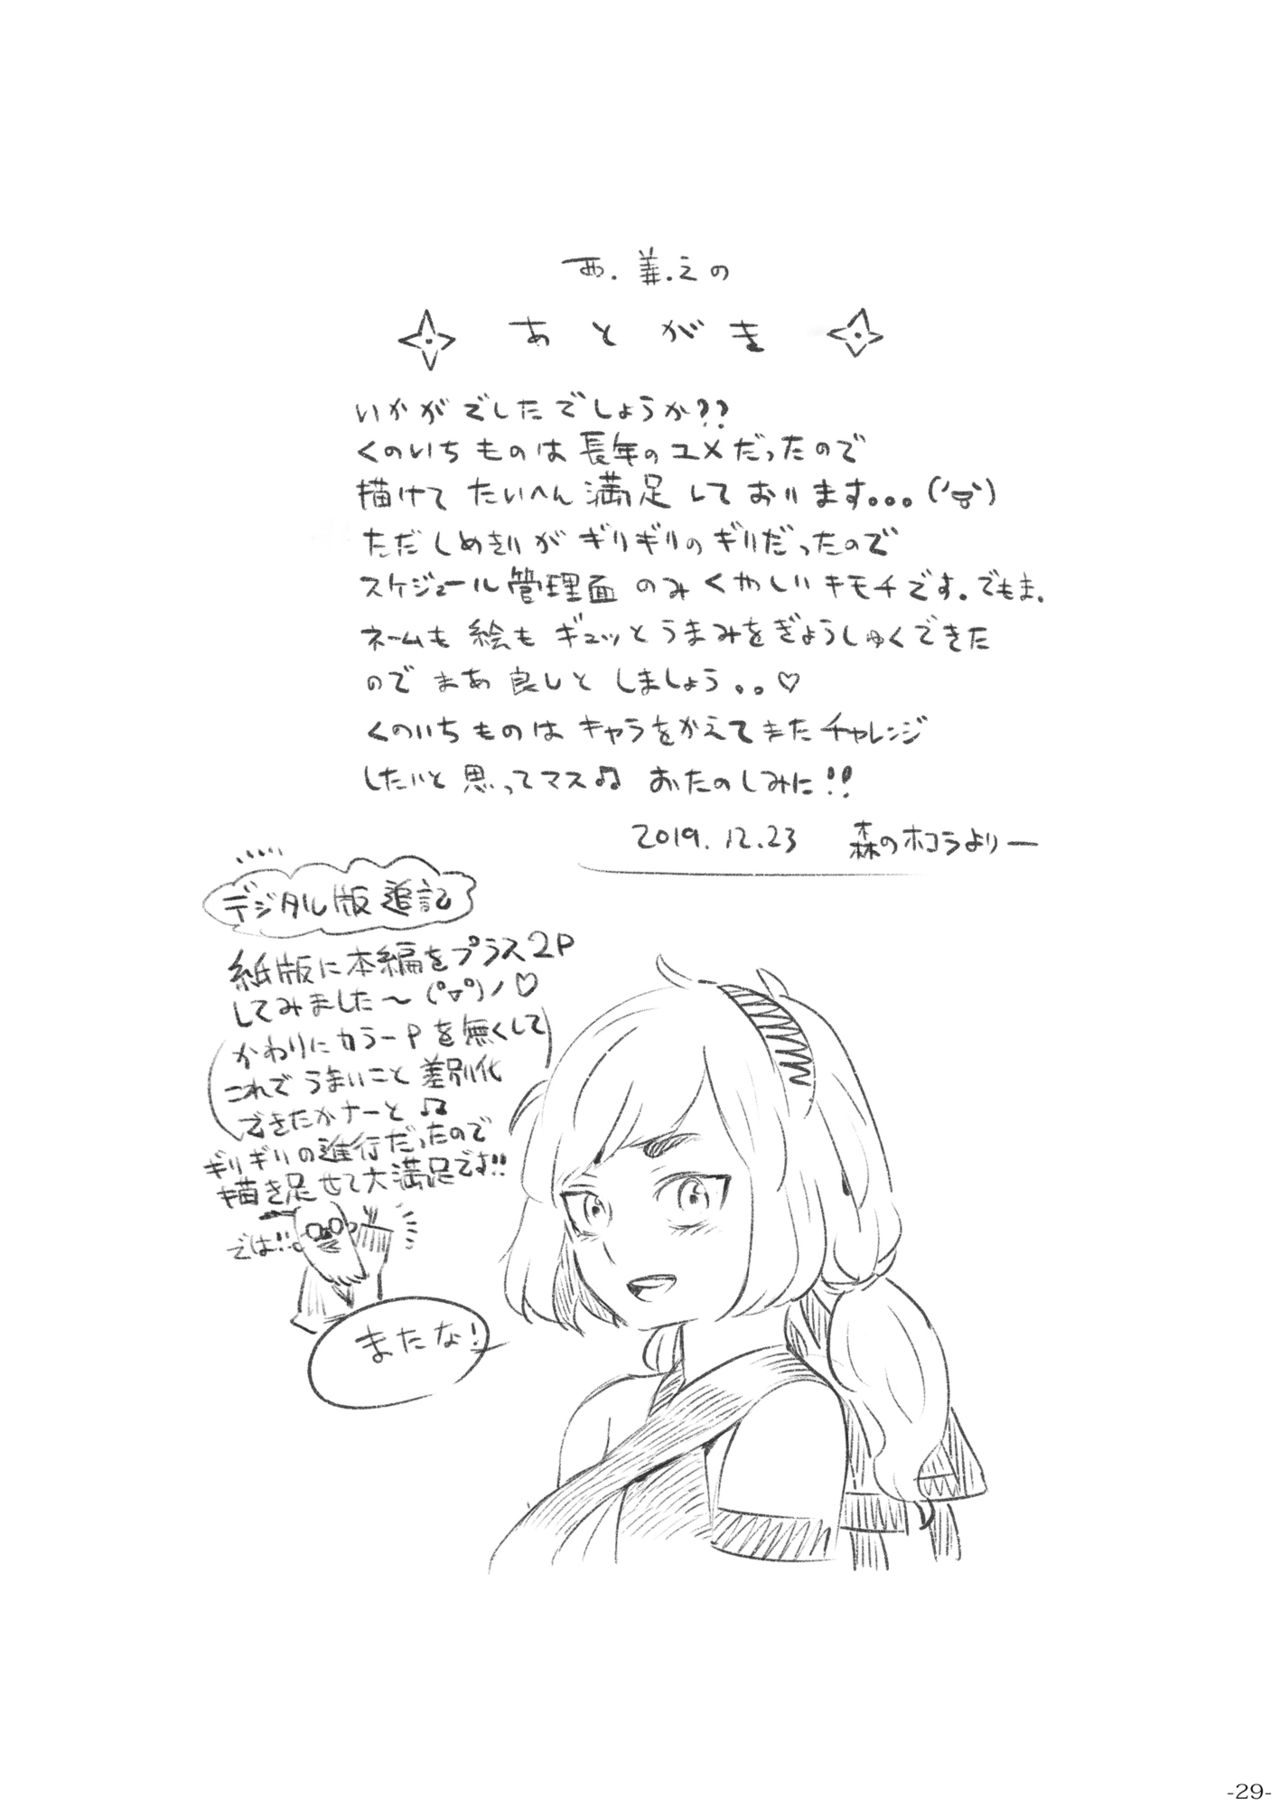 西.義.之の
あとがき
いかがでしたでしょうか??
くのいちものは長年のユメだったので
描けてたいへん満足しております。。。
ただしめきりがギリギリのギリだったので
スケジュール管理面のみくやしいキモチです。でもま、
ネームも絵もギュッとうまみをぎょうしゅくできた
のでまあ良しとしましょう。。♡
くのいちものはキャラをかえてまたチャレンジ
したいと思ってマス♫ おたのしみに!!
2019.12.23 森のホコラよりー
デジタル版追記
紙版に本編をプラス2P
してみました〜 (°▽°)ノ♡
かわりにカラーPを無くして
これでうまいこと差別化
できたかナーと♫
ギリギリの進行だったので
描き足せて大満足です!!
では!!
またな!
-29-